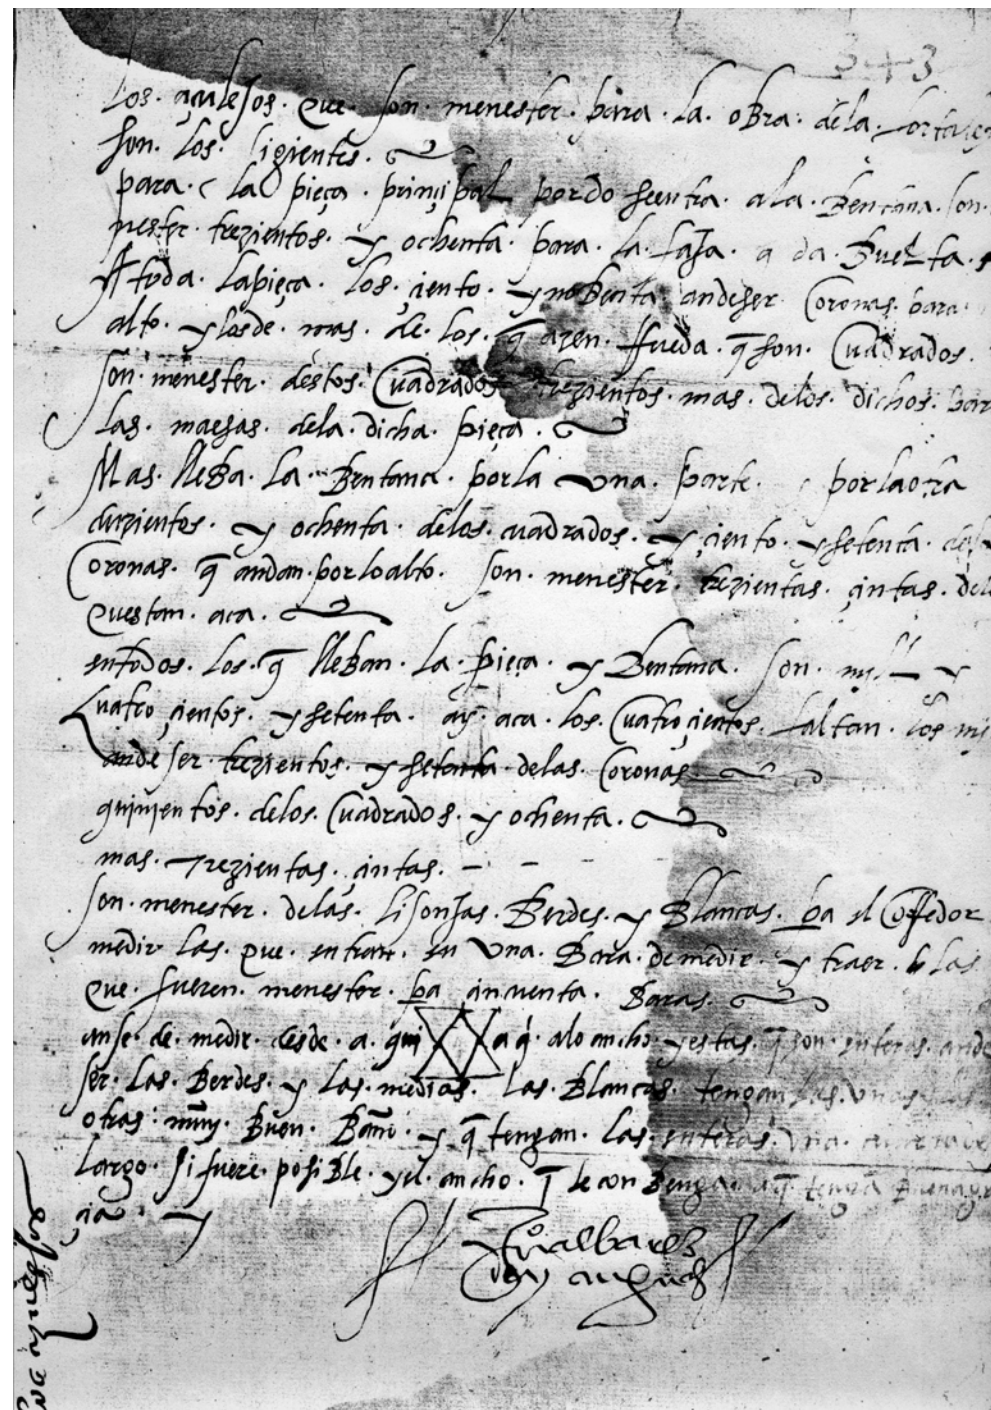 los. açulejos. que. son. menester. para. la. obra. dela. fortale
son. los. sigientes.
para. la pieça. prinçipal por do se entra. ala. Bentana. son.
nester. trezientos. y ochenta. para. la. faja. a da. Buelta.
toda. la pieça. los. çiento. y noBenta. andeser Coronas. para.
alto. y los de. mas. de. los. q azen. Rueda. q son. Cuadrados.
son. menester. destos. Cuadrados trezientos. mas. delos. dichos. par
las. dela. dicha. pieça.
Mas. lleBa. la. Bentana. porla una. parte. porlaotra
duzientos. y ochenta. delos. cuadrados. y çiento. y setenta.
Coronas. q andan. por lo alto. son. menester. trezientas. çintas. del
questan. aca.
entodos. los. q lleBan. la. pieça. y Bentana. son. mill y
Cuatro çientos. y setenta. ay. aca. los. Cuatro çientos. faltan. los mi
ande ser. trezientos. y setenta delas. Coronas
quinientos. delos. Cuadrados. y ochenta.
mas. trezientas. çintas.
son. menester. delas. lisonjas. Berdes. y Blancas. pa el Corredor
medir las. que. entran. en una. Bara. de medir. y traer. las
que. fueren. menester. pa cincuenta. Baras.
anse. de. medir. desde. a. qui a q. alo ancho. y estas. q son. enteras. ande
ser. las. Berdes. y las. medias. las. Blancas. tengan las. unas
otras. muy. Buen. y q tengan. las. enteras. una.
largo. si fuere. posiBle. y el ancho. q le conBenga q tenga Buena gr
çia. y